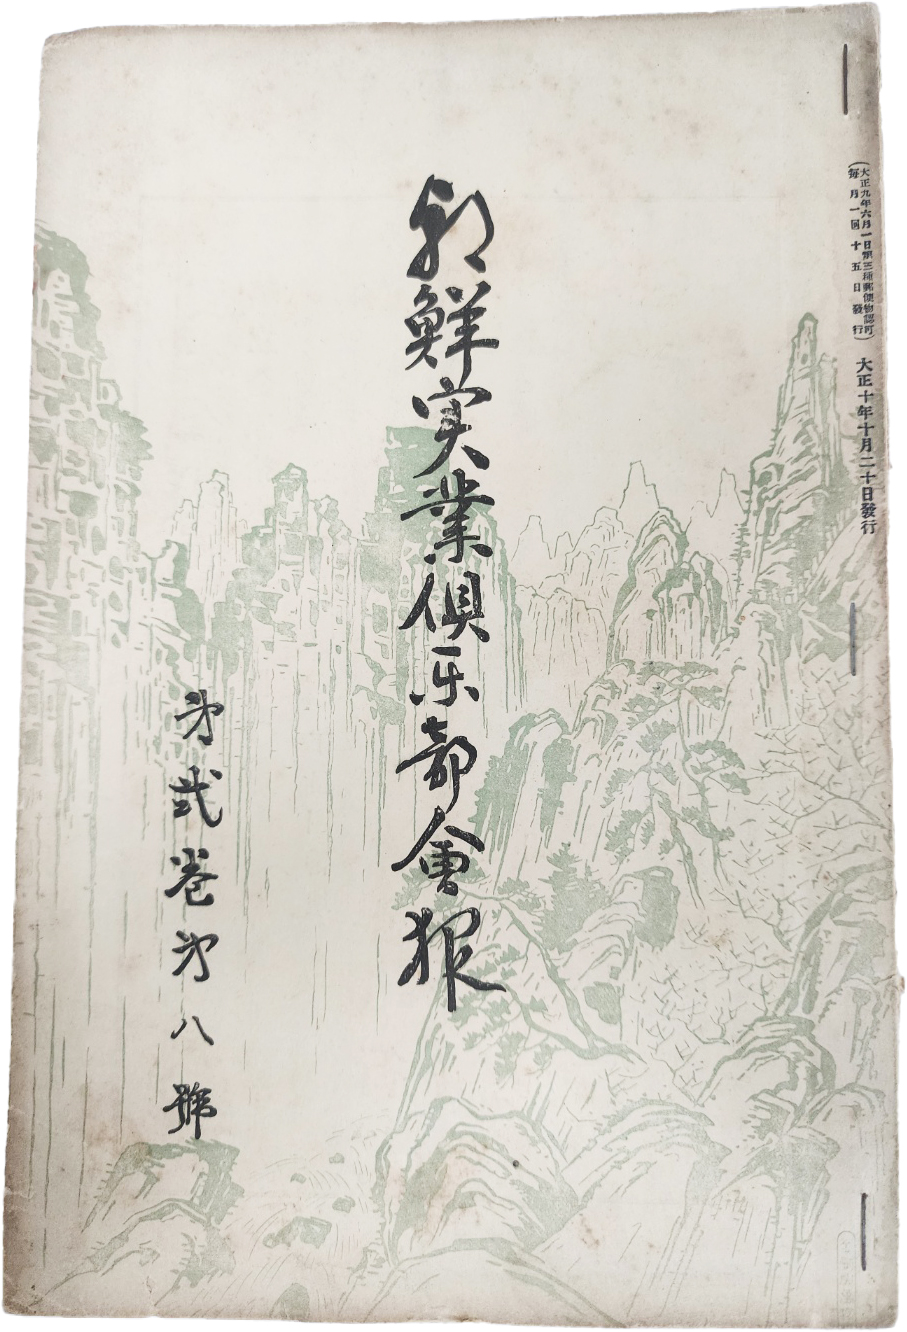 (大正九年六月一日第三種郵便物認可)
(每月一回十五日發行)
大正十年十月二十日發行
朝鮮実業俱乐部會報
第貳卷第八號